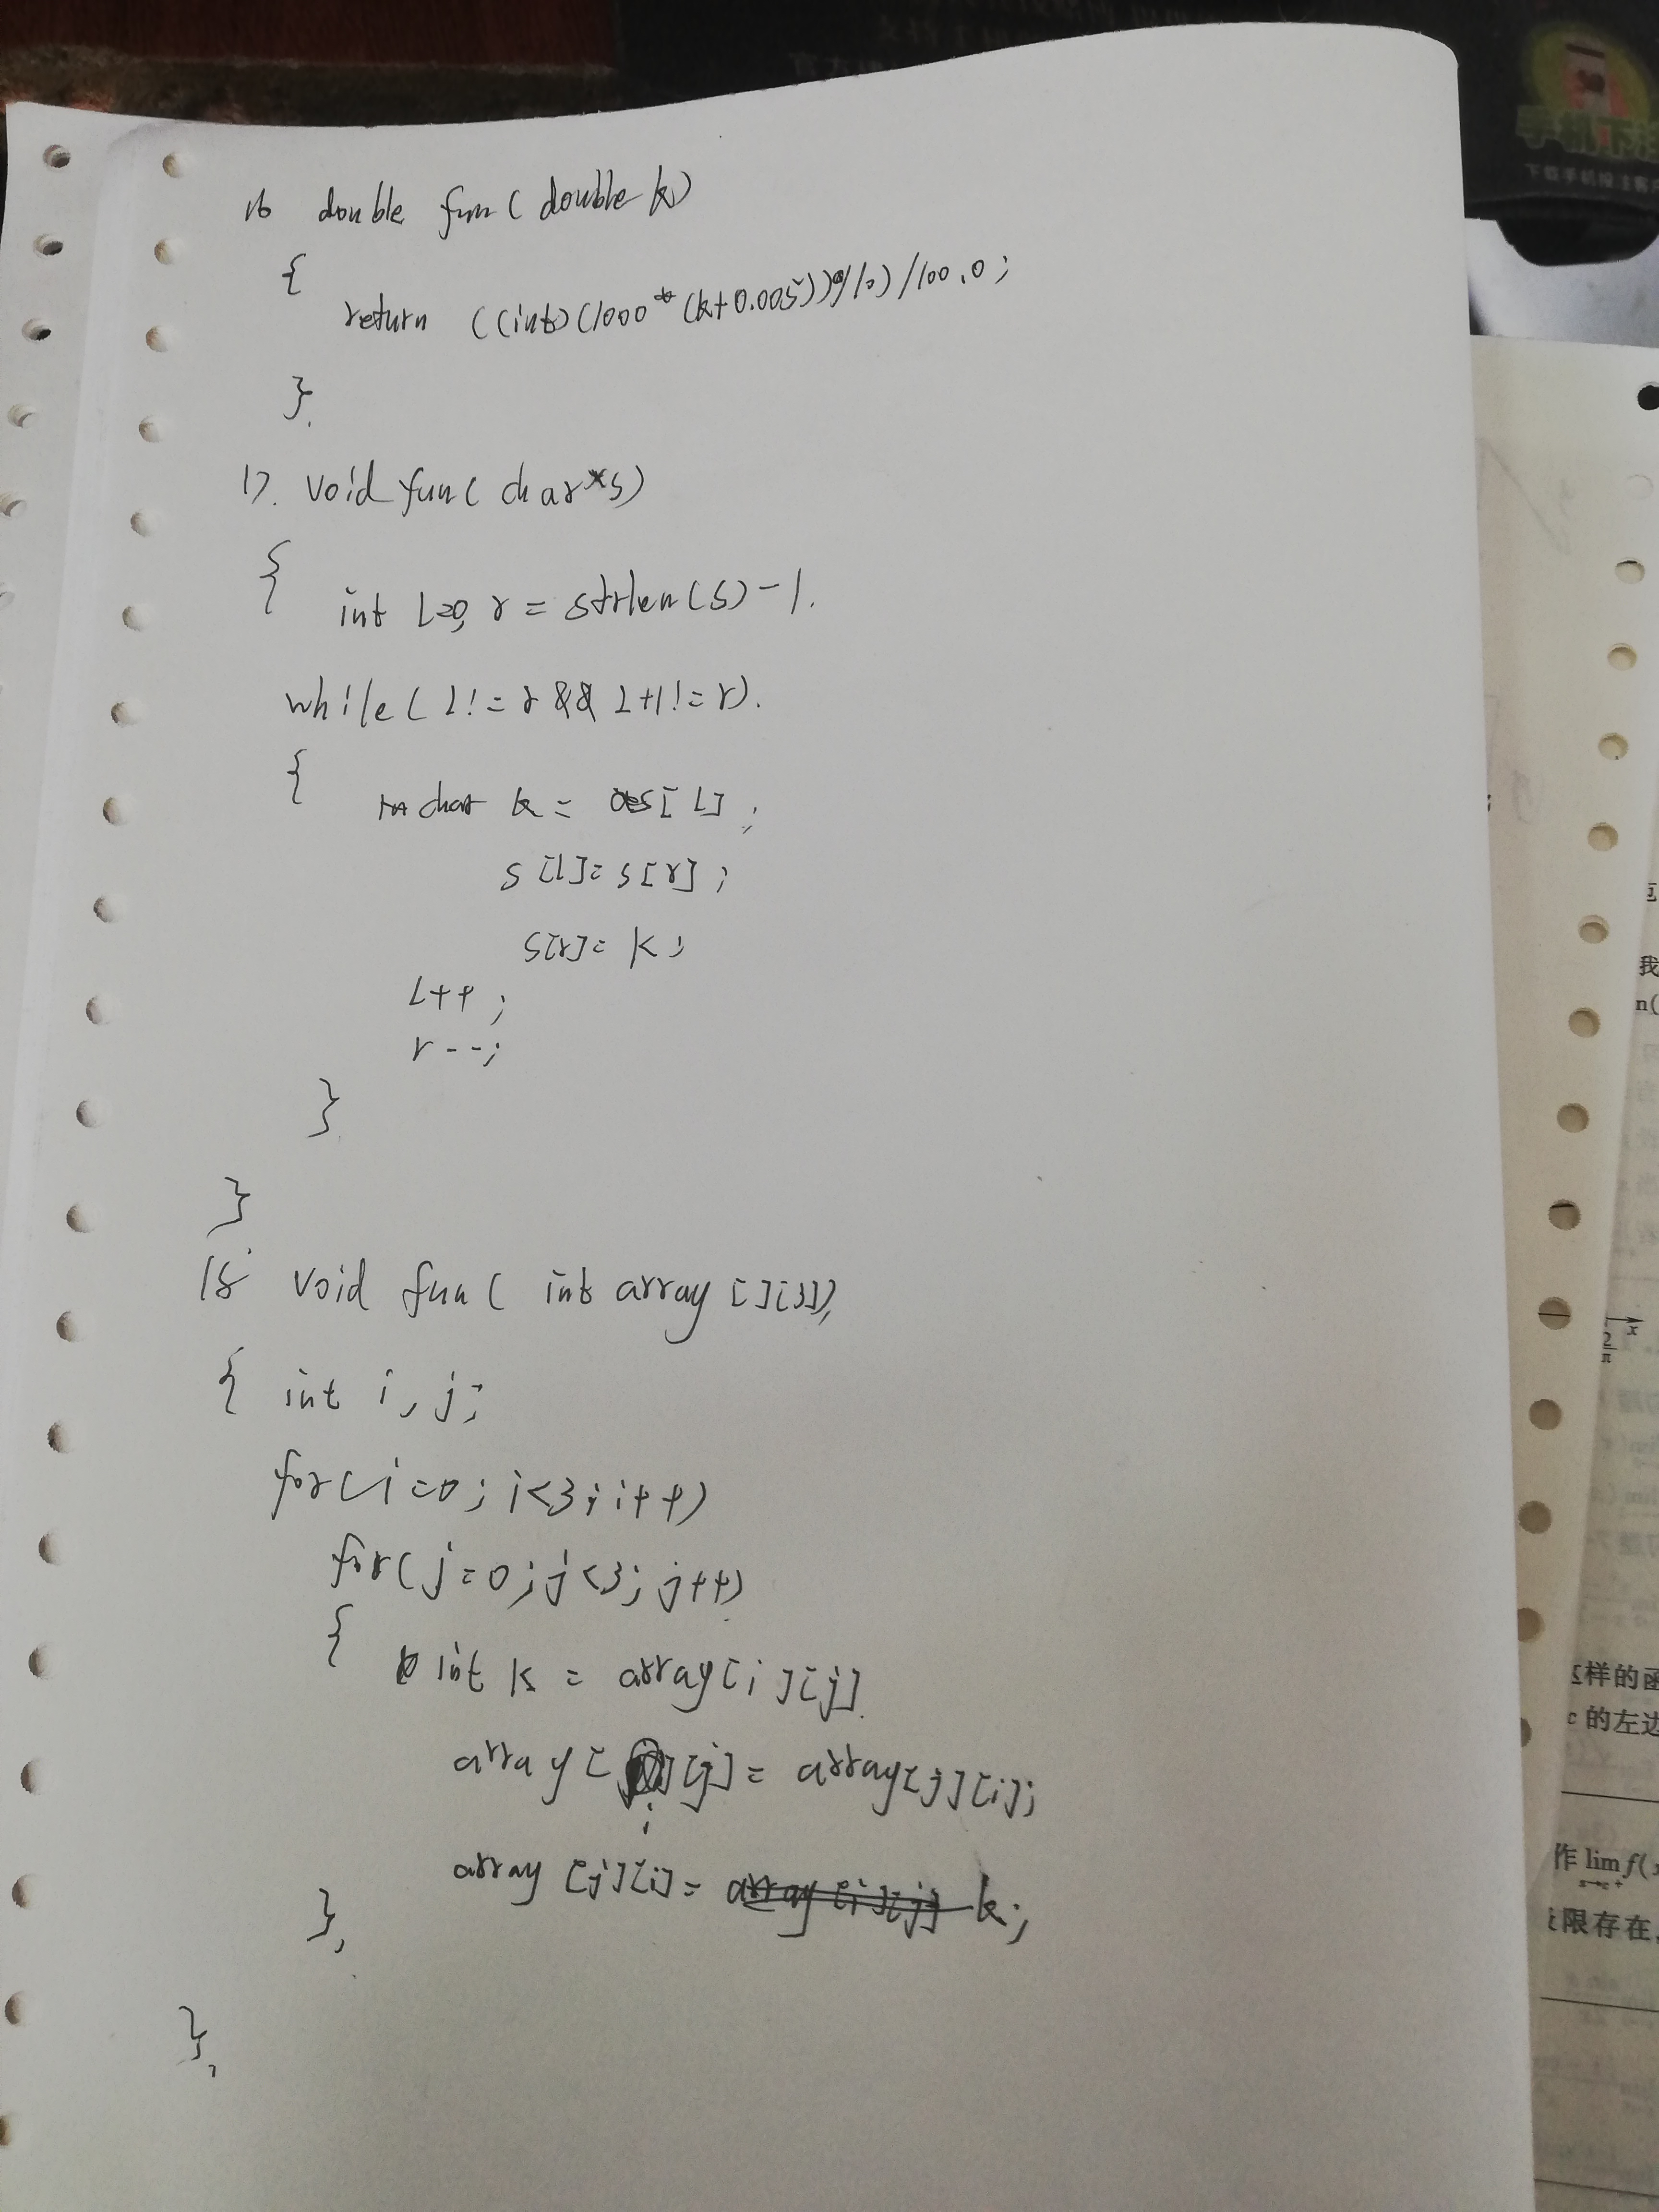 支持
官方
手机下注
下载手机投注客户
16 double fun( double k)
{
return ((int)(1000*(k+0.005))%10)/100.0;
}.
17. void fun( char*s)
{
int L=0, r = strlen(s)-1.
while( L!=r && L+1!=r).
{
char k = s[L];
s[L]=s[r];
s[r]= k;
L++;
r--;
}
}
18 void fun( int array[][3]),
{ int i, j;
for(i=0; i<3; i++)
for(j=0; j<3; j++)
{ int k = array[i][j]
array[i][j]= array[j][i];
array[j][i]= k;
},
},
我
n(
x
2
π
这样的函
c 的左边
作 lim f(
x→c+
限存在,